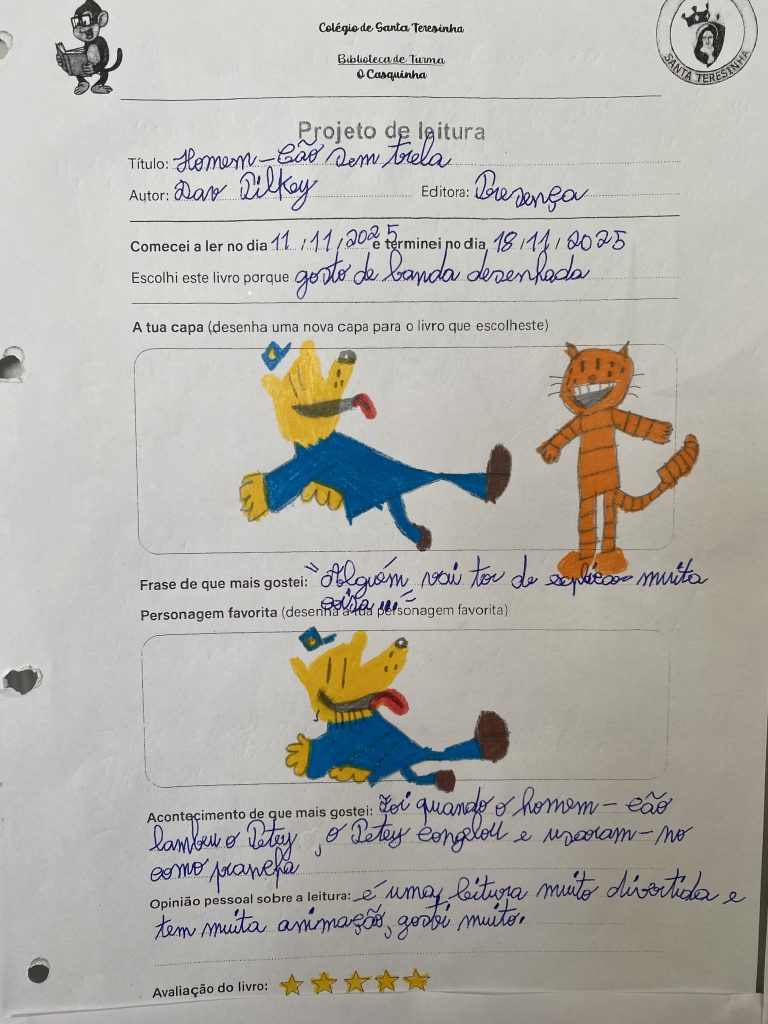 Colégio de Santa Teresinha
Biblioteca de Turma
O Casquinha
SANTA TERESINHA
Projeto de leitura
Título: Homem-Cão Sem trela
Autor: Dav Pilkey Editora: Presença
Comecei a ler no dia 11/11/2025 e terminei no dia 18/11/2025
Escolhi este livro porque gosto de banda desenhada
A tua capa (desenha uma nova capa para o livro que escolheste)
Frase de que mais gostei: "Alguém vai ter de explicar muita
coisa..."
Personagem favorita (desenha a tua personagem favorita)
Acontecimento de que mais gostei: Foi quando o homem-cão
lambeu o Petey, o Petey congelou e usaram-no
como prancha
Opinião pessoal sobre a leitura: é uma leitura muito divertida e
tem muita animação, gostei muito.
Avaliação do livro: